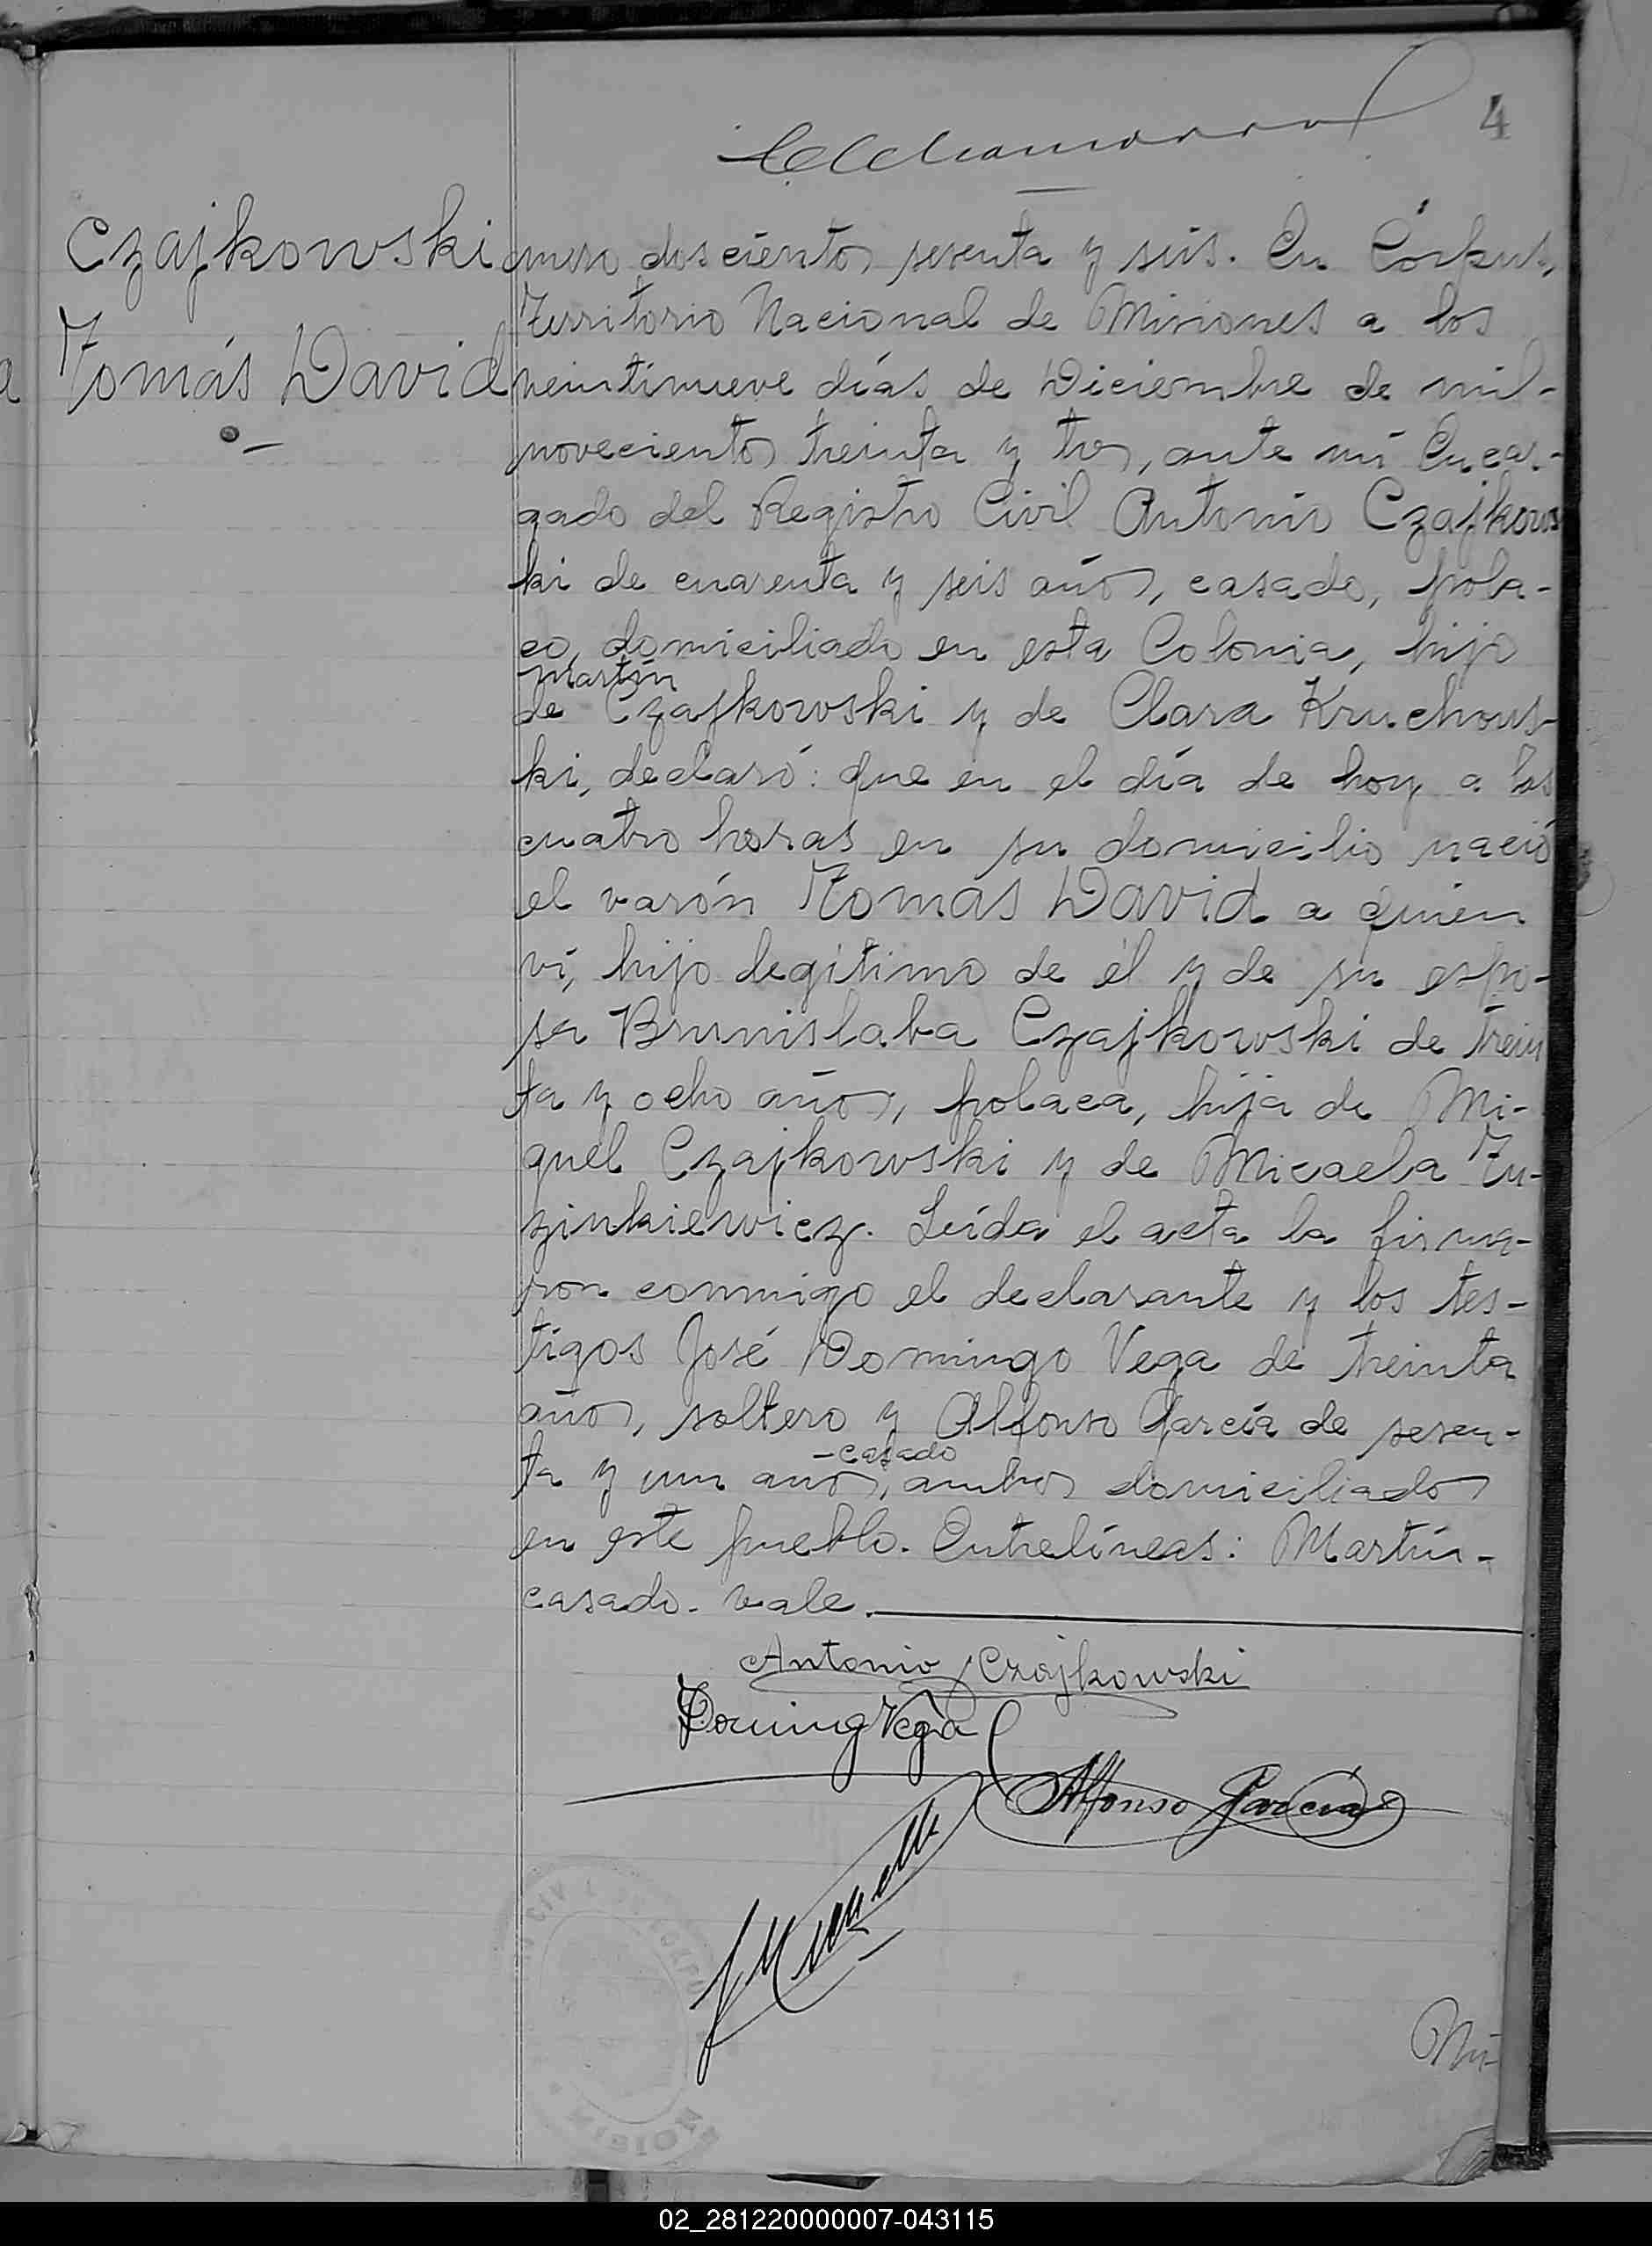 4
Czajkowski
Tomás David
mero doscientos sesenta y seis. En Córpus,
Territorio Nacional de Misiones a los
veintinueve días de Diciembre de mil-
novecientos treinta y tres, ante mí Encar-
gado del Registro Civil Antonio Czajkows
ki de cuarenta y seis años, casado, pola-
co, domiciliado en esta Colonia, hijo
Martín
de Czajkowski y de Clara Kruchous-
ki, declaró: que en el día de hoy a las
cuatro horas en su domicilio nació
el varón Tomás David a quien
ví, hijo legítimo de él y de su espo-
sa Brunislaba Czajkowski de trein
ta y ocho años, polaca, hija de Mi-
guel Czajkowski y de Micaela Tu-
zinkiewicz. Leída el acta la firma-
ron conmigo el declarante y los tes-
tigos José Domingo Vega de treinta
años, soltero y Alfonso García de sesen-
-casado
ta y un años, ambos domiciliados
en este pueblo. Entrelíneas: Martín-
casado. vale.
Antonio Czajkowski
Doming Vega
Alfonso García
Nú-
02_281220000007-043115